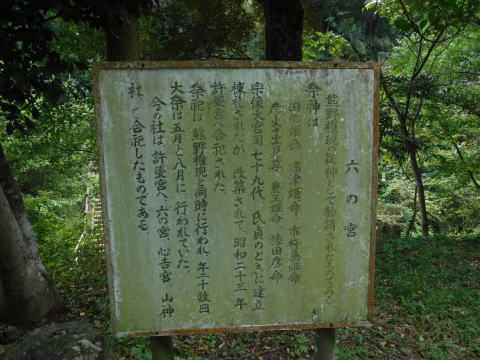 六の宮
熊野権現の従神として勧請されたものである
祭神は
田心姫命 湍津姫命 市杵島姫命
奥玉姫命 猿田彦命
宗像大宮司七十九代、氏貞のときに建立
棟札されたが 改築されて 昭和二十三年
許斐宮へ合祀された。
祭祀は、熊野権現と同時に行われ、年二十数回
大祭は五月と八月に、行われていた。
今の社は、許斐宮へ、六の宮 心吉宮、山神
社 合祀したものである。